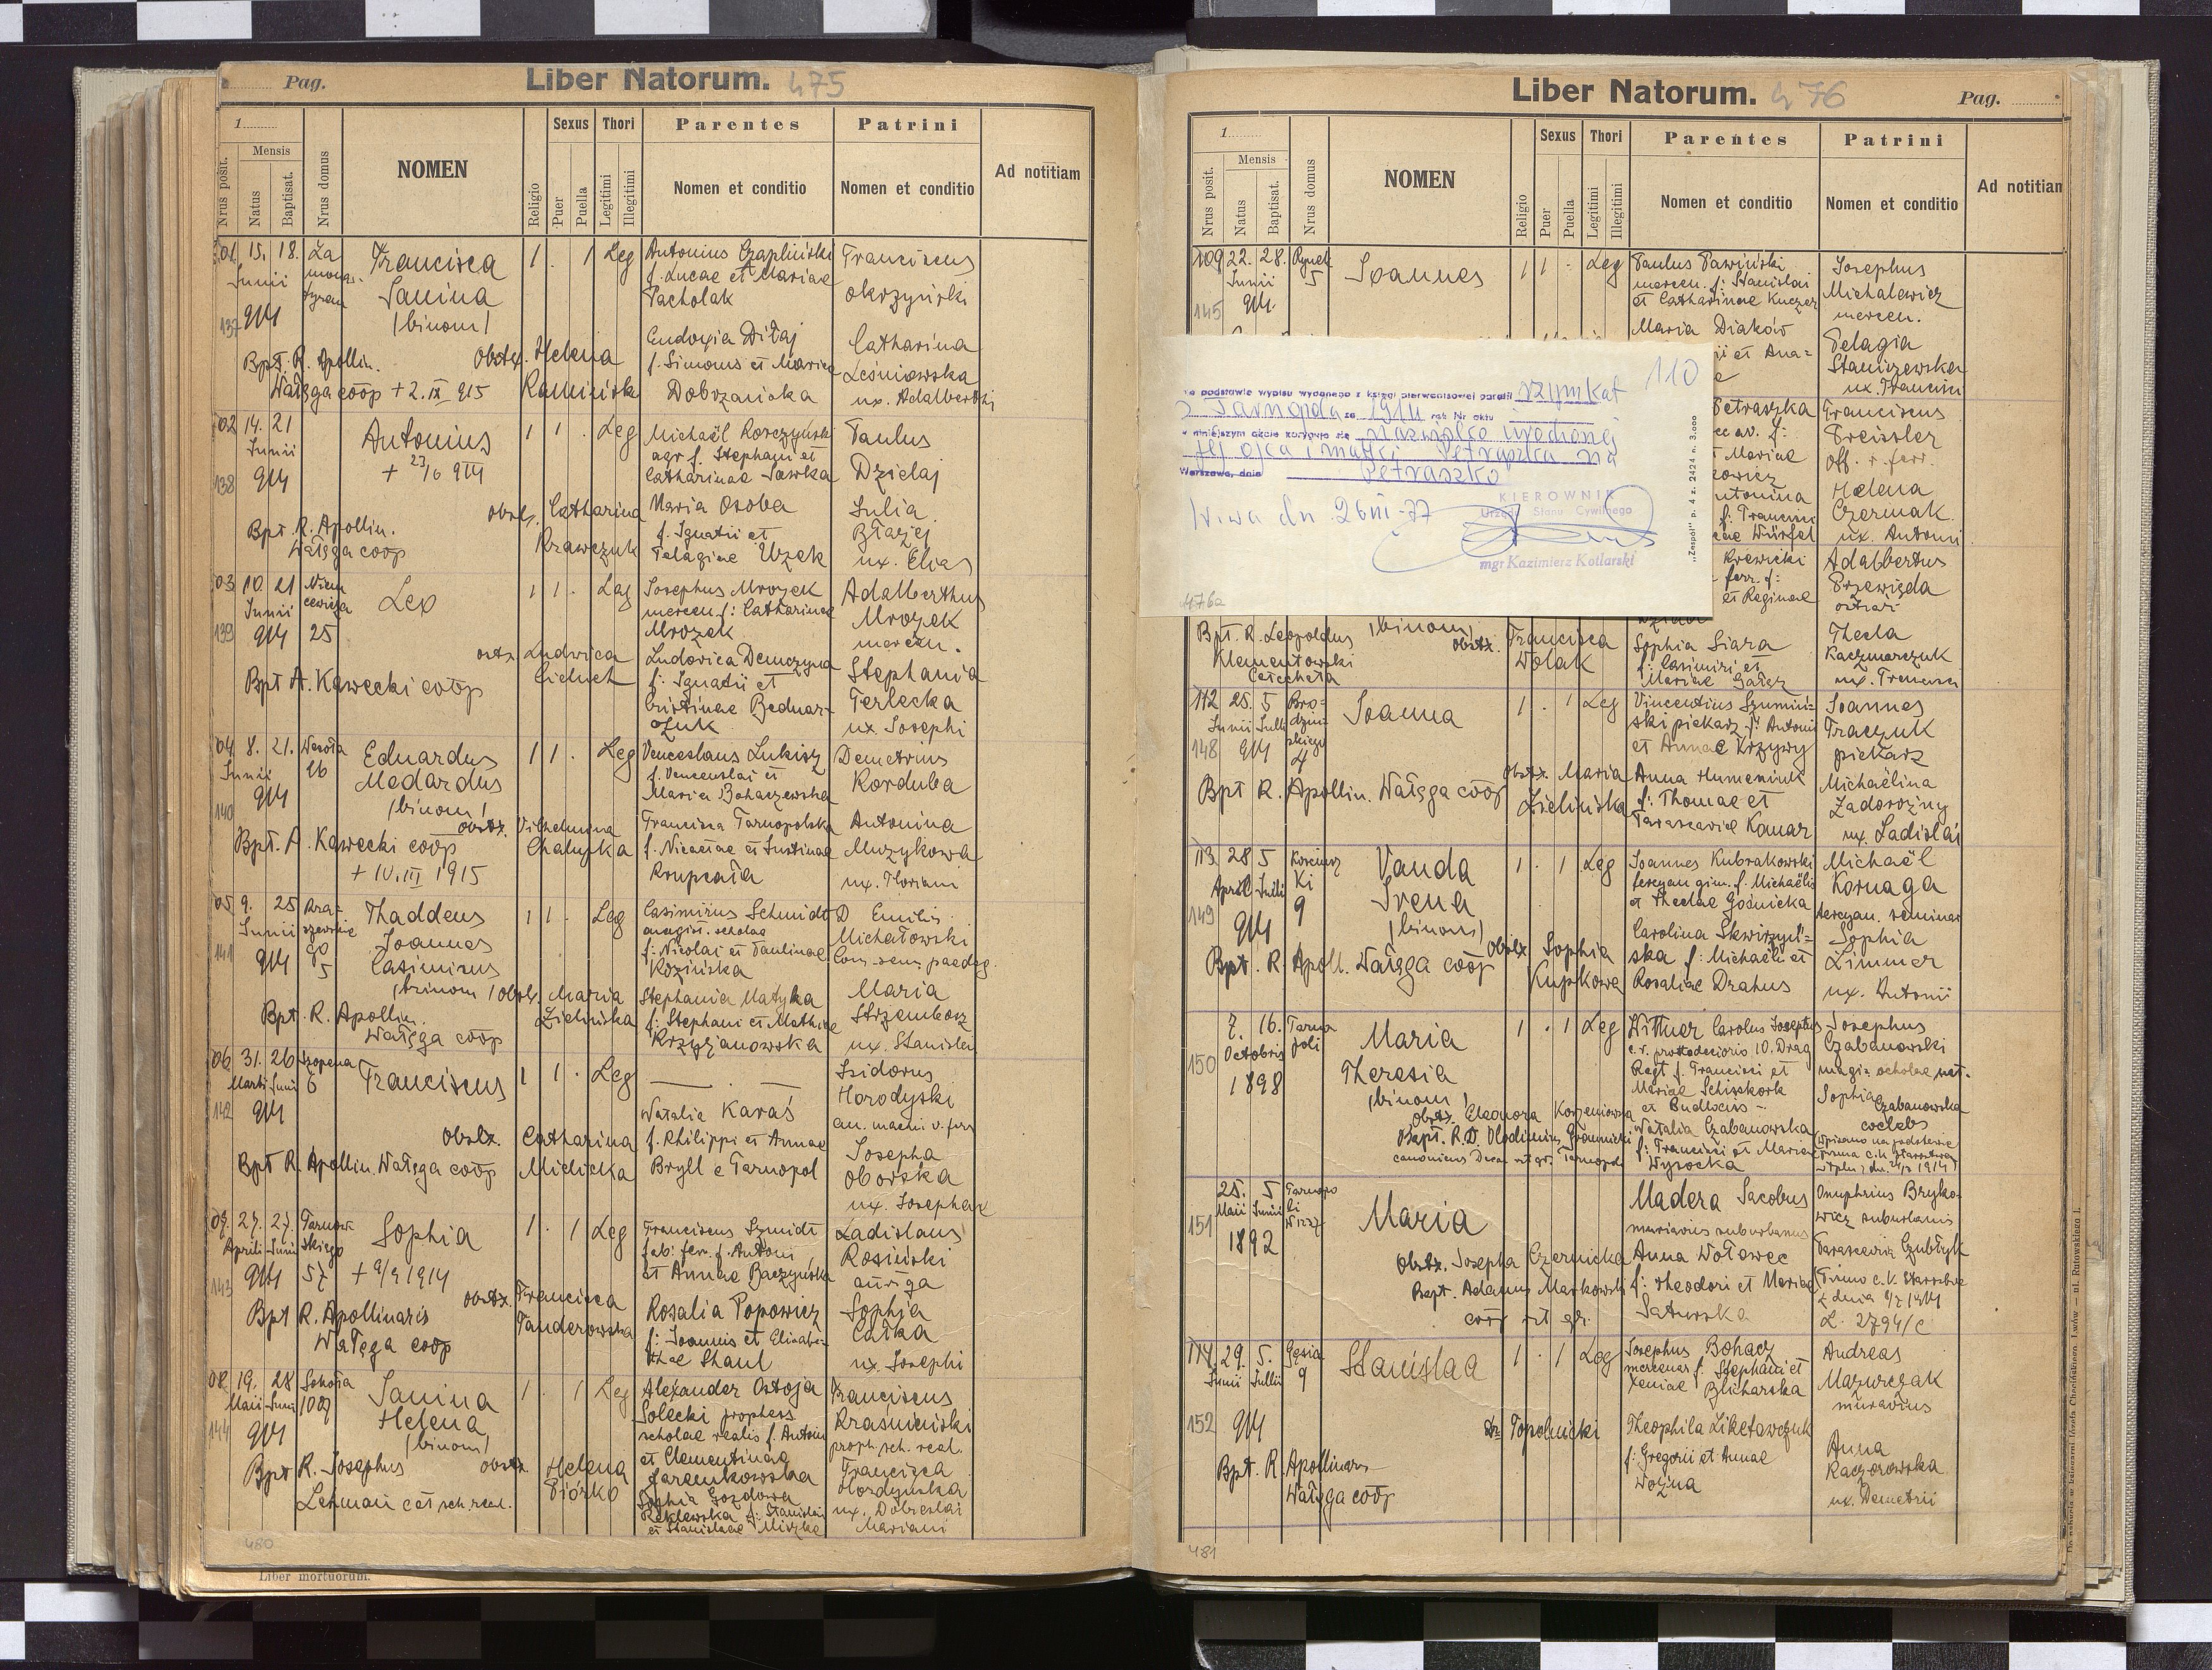 Pag.
Liber Natorum. 475
1
Mensis
Nrus posit.
Natus
Baptisat.
Nrus domus
NOMEN
Religio
Sexus
Puer
Puella
Thori
Legitimi
Illegitimi
Parentes
Nomen et conditio
Patrini
Nomen et conditio
Ad notitiam
01 15. 18. Za
Junii
914
137
Francisca
Janina
(binom)
1 . 1 Leg
Antonius Czapliński
f. Lucae et Mariae
Pacholak
Eudoxia Diłaj
f. Simonis et Mariae
Dobrzańska
Franciscus
Okrzyński
Catharina
Leśniowska
ux. Adalberti
Bpt. R. Apollin.
Wałęga coop + 2. IX 915
Obstx. Helena
Kamińska
02 14. 21
Junii
914
138
Antonius
+ 27/6 914
1 1 . Leg
Michaël Korczyński
agr f. Stephani et
Catharinae Sawka
Maria Osoba
f. Ignatii et
Pelagiae Uzek
Paulus
Dzielaj
Julia
Błażej
ux. Elias
Obst. Catharina
Krawczuk
Bpt. R. Apollin.
Wałęga coop
03 10. 21 Niem
cewicza
Junii
914 25
139
Leo
1 1 . Leg
Josephus Mrozek
mercen. f: Catharinae
Mrozek
Ludovica Demczyna
f: Ignatii et
Cristinae Bednar-
czuk
Adalberthus
Mrozek
mercen.
Stephania
Terlecka
ux Josephi
Ludwica
Cieluch
Bpt A. Kawecki coop
04 8. 21. Wesoła
Junii 26
914
140
Eduardus
Medardus
(binom)
1 1 . Leg
Venceslaus Lukisz
f. Venceslai et
Maria Bohaczewska
Francisca Tarnopolska
f. Nicaciae et Justinae
Krupcała
Demetrius
Korduba
Antonina
Muzykowa
ux. Floriani
obstx. Vilhelmina
Chalupka
Bpt. A. Kawecki coop
+ 10. III 1915
05 9. 25 Kra-
szewskie
Junii
914 5
141
Thaddeus
Joannes
Casimirus
(trinom)
1 1 . Leg
Casimirus Schmidt
magis. scholae
f: Nicolai et Paulinae
Kozińska
Stephania Matyka
f: Stephani et Mathiae
Krzyżanowska
D Emilis
Michałowski
Com. sem. paedag.
Maria
Strzembosz
ux. Stanislai
Obst. Maria
Zielińska
Bpt. R. Apollin.
Wałęga coop
06 31. 26 Szopena
Martii Junii 6
914
142
Franciscus
1 1 . Leg
Natalia Karaś
f. Philippi et Annae
Bryll e Tarnopol
Isidorus
Horodyski
an. machi v. ferr
Josepha
Oborska
ux. Josephae
Obstx. Catharina
Mielnicka
Bpt R. Apollin. Wałęga coop
07. 27. 27. Tarnow
skiego
Aprili Junii
914 57
143
Sophia
+ 9/9 1914
1 . 1 Leg
Franciscus Szmidt
fab: fer. f. Antoni
et Annae Baczyńska
Rosalia Popowicz
f: Joannis et Elisabe-
thae Shaul
Ladislaus
Rosiński
auriga
Sophia
Całka
ux. Josephi
obstx. Francisca
Panderowska
Bpt R. Apollinaris
Wałęga coop
08 19. 28 Szkoła
Maii Junii 1007
914
144
Janina
Helena
(binom)
1 . 1 Leg
Alexander Ostoja
Solecki prophess
scholae realis f. Antoni
et Clementinae
Jarenkowska
Sophia Gozdowa
Reklewska f: Stanislai
et Stanislaae Miszke
Franciscus
Krasnicki
proph. sch. real.
Francisca
Hordyńska
ux. Dobreslai
Mariani
obstx Helena
Piórko
Bpt R. Josephus
Lehman cat sch. real.
480
Liber mortuorum.
Liber Natorum. 476
Pag.
1
Mensis
Nrus posit.
Natus
Baptisat.
Nrus domus
NOMEN
Religio
Sexus
Puer
Puella
Thori
Legitimi
Illegitimi
Parentes
Nomen et conditio
Patrini
Nomen et conditio
Ad notitiam
109 22. 28. Rynek
Junii 5
914
145
Joannes
1 1 . Leg
Paulus Pawiński
mercen. f: Stanislai
et Catharinae Kuczer
Maria Diaków
Josephus
Michalewicz
mercen.
Pelagia
Staniszewska
ux. Francisci
110
Na podstawie wypisu wydanego z księgi pierwopisowej parafii rzymkat
z Tarnopola za 1914 rok Nr aktu
w niniejszym akcie koryguje się nazwisko urodzonej
jej ojca i matki Petraszka na
Warszawa, dnia Petraszko
W-wa dn. 26 III-77
KIEROWNIK
Urzędu Stanu Cywilnego
mgr Kazimierz Kotlarski
"Zespół" p. 4 z. 2424 n. 3.000
476a
Petraszka
Mariae
Antonina
f: Francisci
Würfel
Krewicki
ferr. f:
et Reginae
Franciscus
Preissler
Off. v. ferr.
Helena
Czermak
ux. Antoni
Adalbertus
Przewięda
Bpt. R. Leopoldus
Klementowski
Catecheta
(binom)
obstx. Francisca
Wolak
Sophia Siara
f: Casimiri et
Mariae Gałąz
Thecla
Kaczmarczuk
ux. Francisci
112 25. 5 Bro-
dzin
skiego
Junii Julii
914 4
148
Joanna
1 . 1 Leg
Vincentius Szumiń-
ski piekarz f. Antoni
et Annae Krzywy
Anna Humeniuk
f: Thomae et
Parasceviae Konar
Joannes
Traczuk
piekarz
Michaëlina
Zadorożny
ux. Ladislai
obstx. Maria
Zielińska
Bpt R. Apollin. Wałęga coop
113. 28 5 Kościusz
ki
April Julii
914 9
149
Vanda
Irena
(binom)
1 . 1 Leg
Joannes Kubrakowski
tercyan gim. f. Michaëlis
et Theclae Gośnicka
Carolina Skwirzyń-
ska f: Michaëli et
Rosaliae Drahus
Michaël
Kornaga
tercyan. seminar
Sophia
Zimmer
ux. Antonii
Obstx Sophia
Kupkowa
Bpt. R. Apoll. Wałęga coop
7. 16. Tarno
poli
Octobris
1898
150
Maria
Theresia
(binom)
1 . 1 Leg
Wittner Carolus Josephus
10. Drag
Regt f. Francisci et
Mariae Schisskork
et Budweiss -
Natalia Czabanowska
f: Francisci et Mariae
Wysocka
Josephus
Czabanowski
magis scholae nat.
Sophia
Czabanowska
coelebs
Wpisano na podstawie
pisma c.k. Starostwa
1914
Obstx. Eleonora Korzeniowska
Bapt. R.D. Vlodimirus Gromnicki
canonicus Decan rit gr. Tarnopol
25. 5 Tarnopo
li
Maii Junii
1892
151
Maria
Madera Jacobus
murarius suburbanus
Anna Wołowec
f: Theodori et Mariae
Saturska
Onuphrius Bryko-
wicz suburbanis
Parascevia Czubtyk
Pismo c.k. Starostwa
z dnia 9/7 1914
L. 2794/c
Obstx. Josepha Czernicka
Bapt. Adamus Mankowski
coop rit gr.
114. 29. 5. Gęsia
Junii Julii 9
914
152
Stanislaa
1 . 1 Leg
Josephus Bohacz
mercenar f. Stephani et
Xeniae Blicharska
Theophila Liketawczuk
f: Gregorii et Annae
Wozna
Andreas
Mazurczak
murarius
Anna
Kaczorowska
ux. Demetrii
Dr Topolnicki
Bpt. R. Apollinaris
Wałęga coop
481